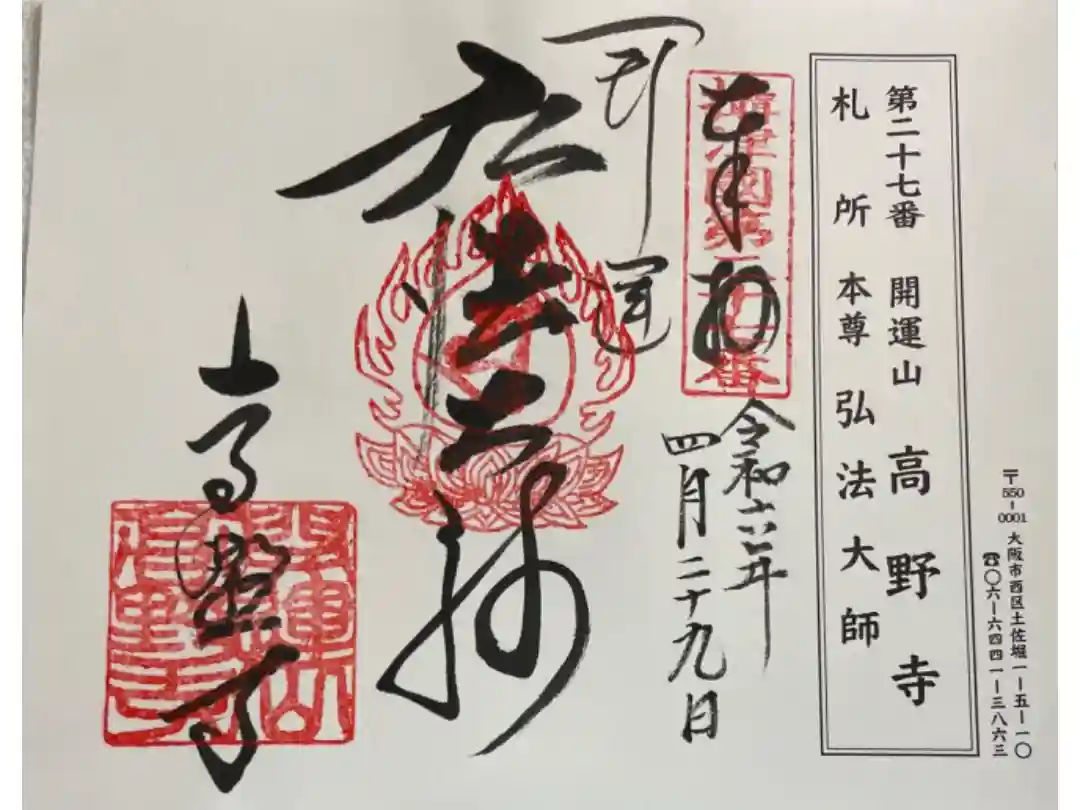 〒550-0001 大阪市西区土佐堀一ー五ー一〇
☎〇六ー六四四一ー三八六三
第二十七番 開運山 高野寺
札所本尊 弘法大師
奉納
摂津国第二十七番
令和六年
四月二十九日
開運
弘法大師
高野寺